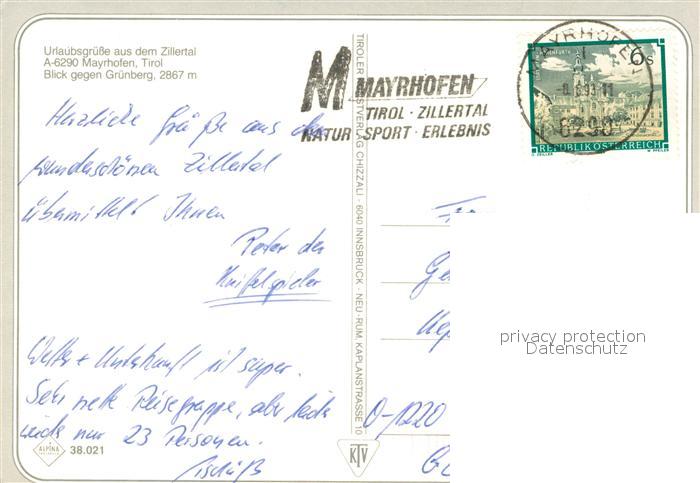 Urlaubsgrüße aus dem Zillertal
A-6290 Mayrhofen, Tirol
Blick gegen Grünberg, 2867 m
Herzliche Grüße aus dem
wunderschönen Zillertal
übermittelt Ihnen
Peter der
Kniffelspieler
Wetter + Unterkunft ist super.
Sehr nette Reisegruppe, aber leider
nur 23 Personen.
Tschüß
ALPINA
38.021
TIROLER KUNSTVERLAG CHIZZALI · 6040 INNSBRUCK - NEU-RUM, KAPLANSTRASSE 10
KTV
M MAYRHOFEN
TIROL · ZILLERTAL
NATUR · SPORT · ERLEBNIS
MAYRHOFEN
6290
6 S
REPUBLIK ÖSTERREICH
privacy protection
Datenschutz